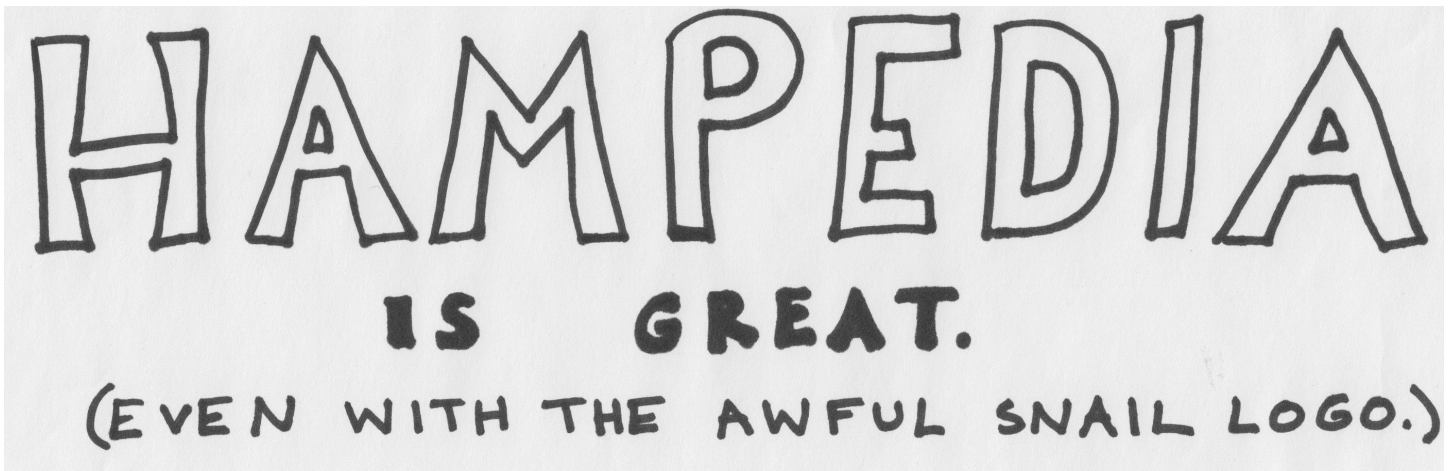 HAMPEDIA
IS GREAT.
(EVEN WITH THE AWFUL SNAIL LOGO.)